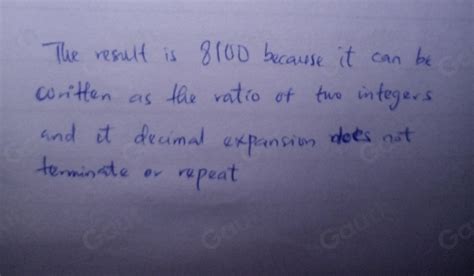 The result is 8100 because it can be
written as the ratio of two integers
and it decimal expansion does not
terminate or repeat